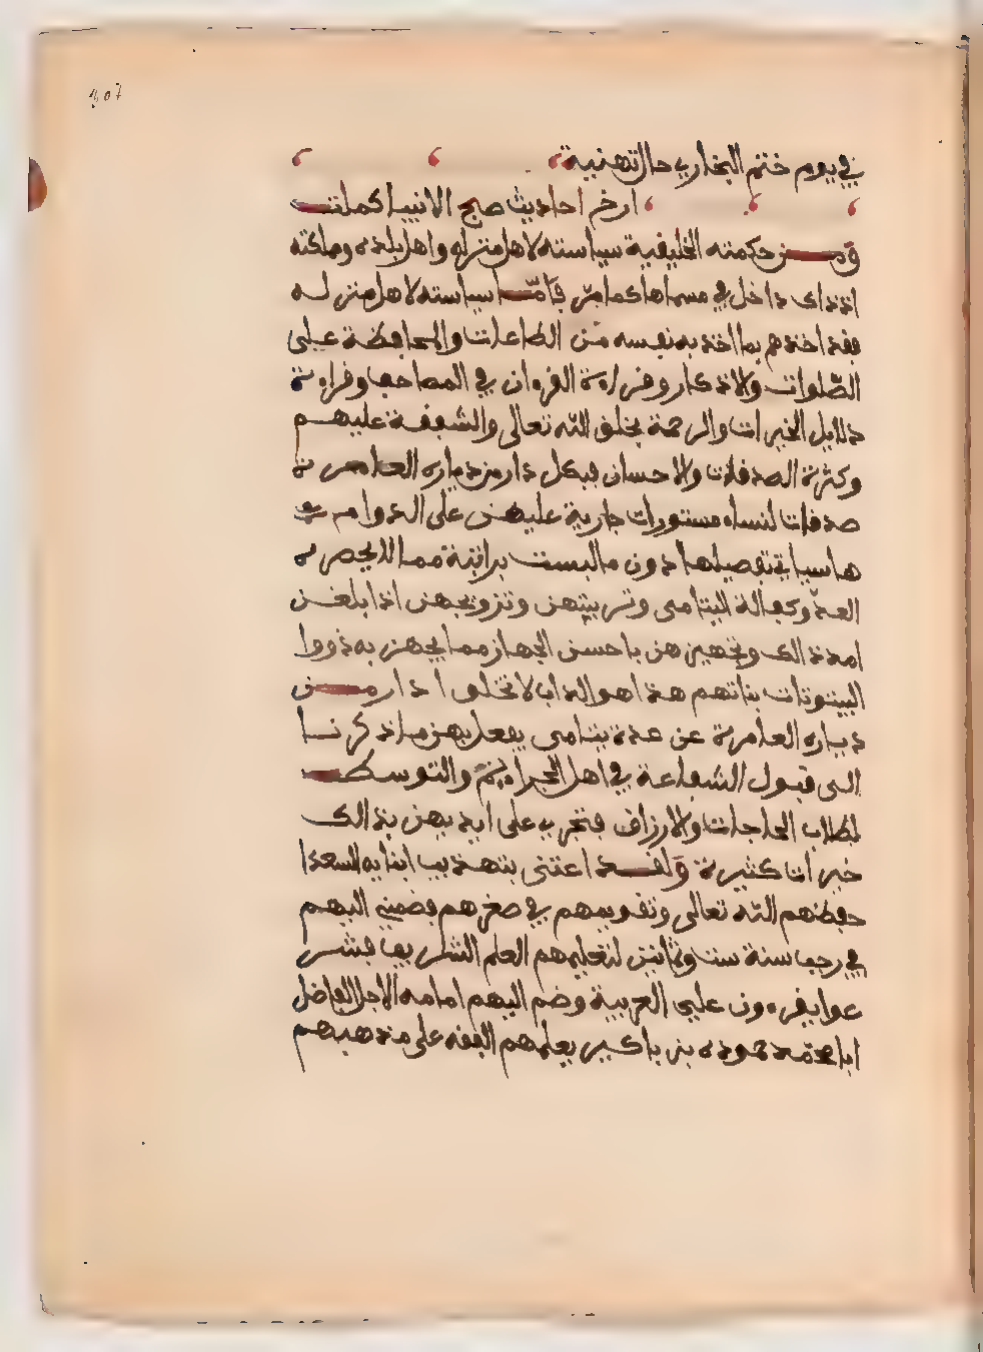 407
في يوم ختم البخاري حال تهنية
ارخم احاديث صبح الانبيا كملت
ومن حكمته الخليفية سياسته لاهل منزله واهل بلده ومملكته
اذ ذاك داخل في مسماها كما مر فاما سياسته لاهل منزله
فقد اخذهم بما اخذ به نفسه من الطاعات والمحافظة على
الصلوات والاذكار وقراءة القرءان في المصاحف وقراءة
دلايل الخيرات والرحمة بخلق الله تعالى والشفقة عليهم
وكثرة الصدقات والاحسان فبكل دار من دياره العامرة
صدقات لنساء مستورات جارية عليهن على الدوام
ها سياتي تفصيلها دون ما ليست براتبة مما لا يحصره
العد وكفالة اليتامى وتربيتهن وتزويجهن اذا بلغن
امد ذالك وتجهيزهن باحسن الجهاز مما يجهز به ذووا
البيوتات بناتهم هذا هو الداب لا تخلوا دار من
دياره العامرة عن عدة يتامى يفعل بهن ما ذكرنا
الى قبول الشفاعة في اهل الجرايم والتوسط
لطلاب الحاجات والارزاق فتجري على ايديهن بذالك
خيرات كثيرة ولقد اعتنى بتهذيب ابنايه السعدا
حفظهم الله تعالى وتقويمهم في صغرهم فضم اليهم
في رجب سنة ست وثمانين لتعليمهم العلم الشريف
يقرءون علي العربية وضم اليهم امامه الاجل الفاضل
ابا محمد حموده بن باكير يعلمهم الفقه على مذهبهم